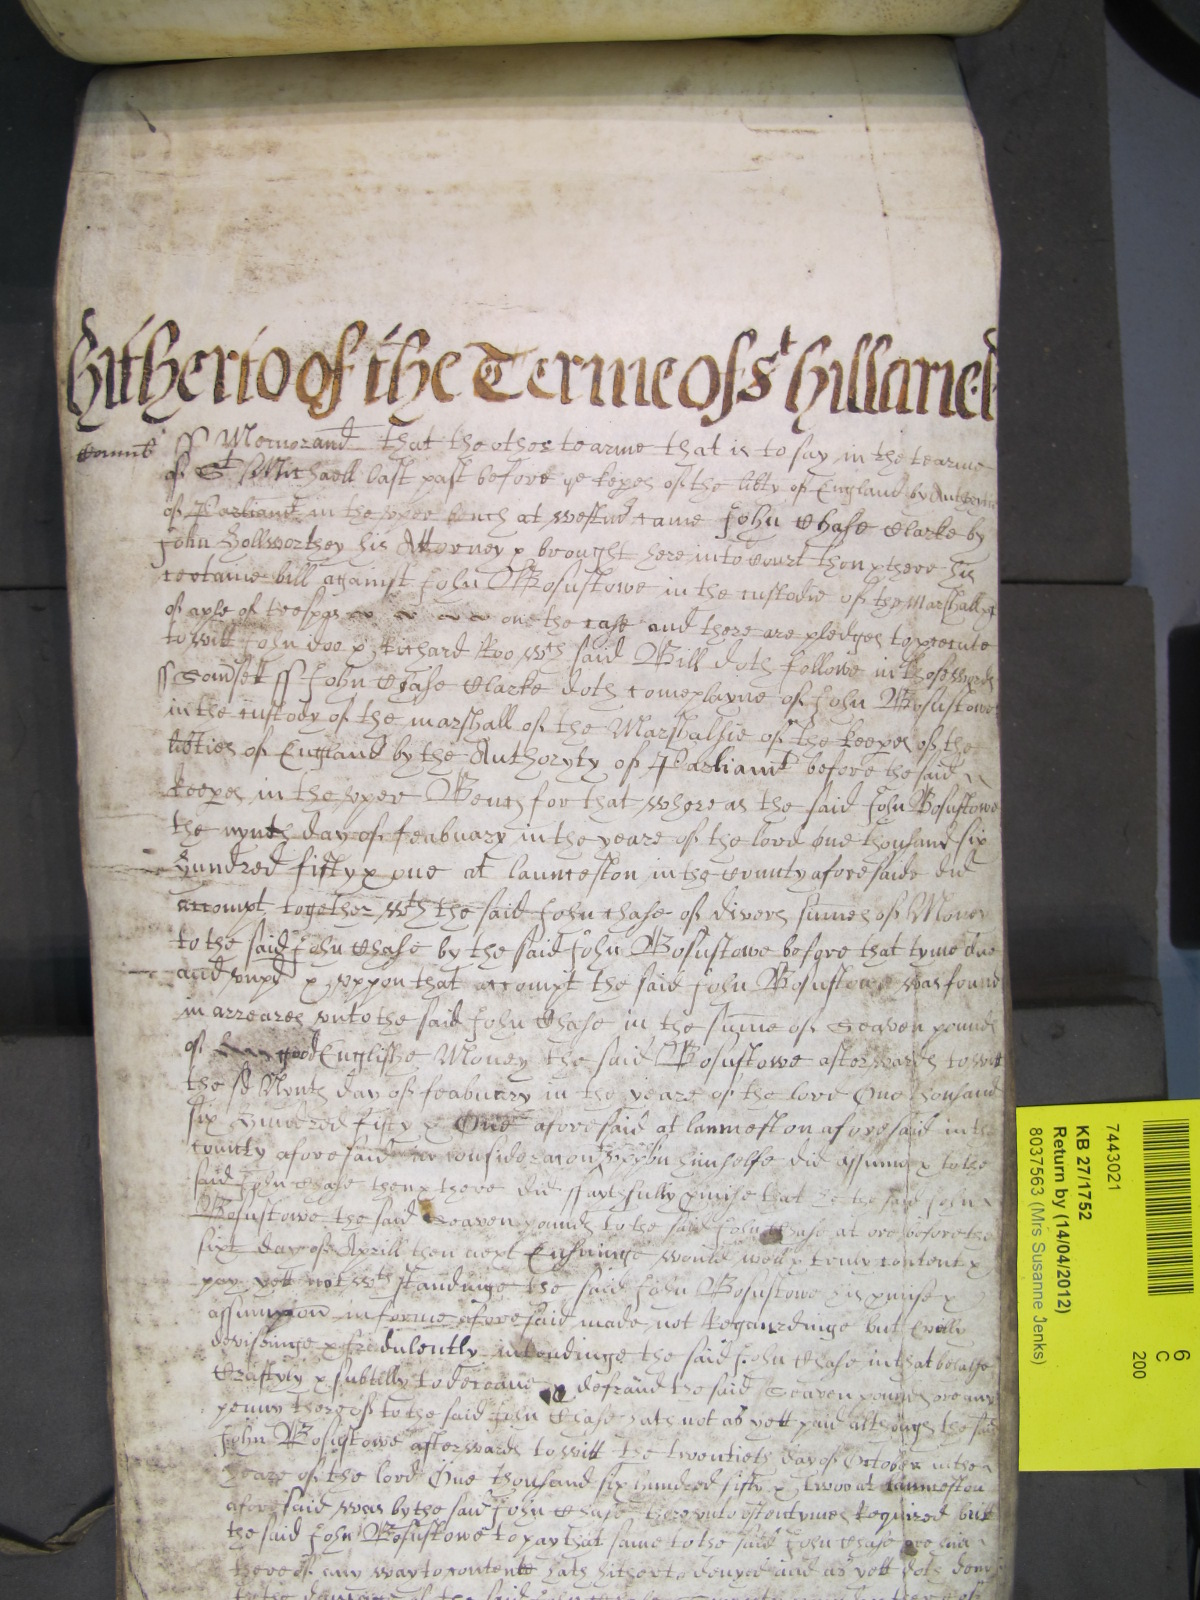 hitherto of the Terme of st hillarie
Cornub ss Memorand that the other tearme that is to say in the tearme
of St Michaell last past before ye kepers of the libty of England by Authority
of Parliamt in the vper bench at westmr came John Chase Clarke by
John Hollworthey his Attorney & brought here into Court then & there his
certaine bill against John Bosustowe in the custodie of the Marshall &c
of a ple of trespas one the case and there are pledges to psecute
to witt John doe & Richard Roo wch said Bill doth followe in these words
ss ss John Chase Clarke doth complayne of John Bosustowe
in the custody of the marshall of the Marshalsie of the keepers of the
libties of England by the Authoryty of Parliamt before the said
keepers in the vper Bench for that whereas the said John Bosustowe
the nynth day of feabuary in the yeare of the lord one thousand six
hundred fifty & one at launceston in the County aforesaide did
accompt together wth the said John Chase of divers sumes of Money
to the said John Chase by the said John Bosustowe before that tyme due
and vnpd & vppon that accompt the said John Bosustowe was found
in arreares vnto the said John Chase in the sume of Seaven pounds
of good Englishe Money the said Bosustowe afterwards to witt
the sd Nynth day of feabuary in the yeare of the lord One thousand
six hundred fifty & One aforesaid at lanneston aforesaid in the
County aforesaid in consideracon himselfe did assume & to the
said John Chase then & there did faythfully pmise that he the said John
Bosustowe the said Seaven pounds to the said John Chase at or before the
day of Aprill then next Ensuinge would well & truly content &
pay yett notwthstandinge the said John Bosustowe his pmise &
assumpcon in forme aforesaid made not Regaurdinge but
deviseinge & fridulently intendinge the said John Chase in that behalfe
Craftyly & subtilly to deceave & defraud the said Seaven pounds or any
penny thereof to the said John Chase hath not as yett paid although the said
John Bosustowe afterwards to witt the twentieth day of October in the
yeare of the lord One thousand six hundred fifty & twoo at lanneston
aforesaid was by the said John Chase therevnto oftentymes Required but
the said John Bosustowe to pay that same to the said John Chase or him
thereof any way to contente hath hitherto denyed and as yett doth deny
7443021
KB 27/1752
Return by (14/04/2012)
8037563 (Mrs Susanne Jenks)
6
C
200